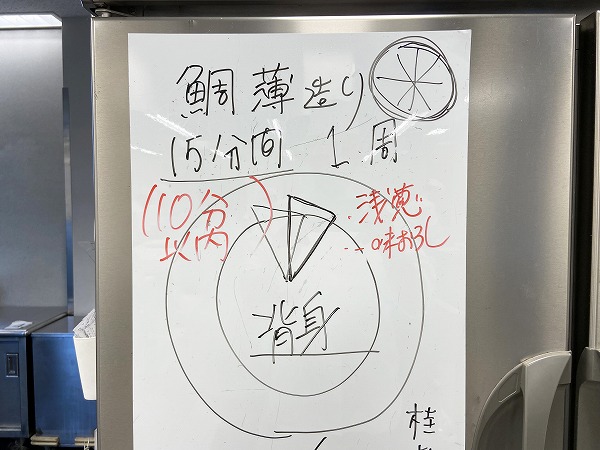 鯛薄造り
15分間 1周
(10分
以内)
・浅葱
・一味おろし
背身
桂